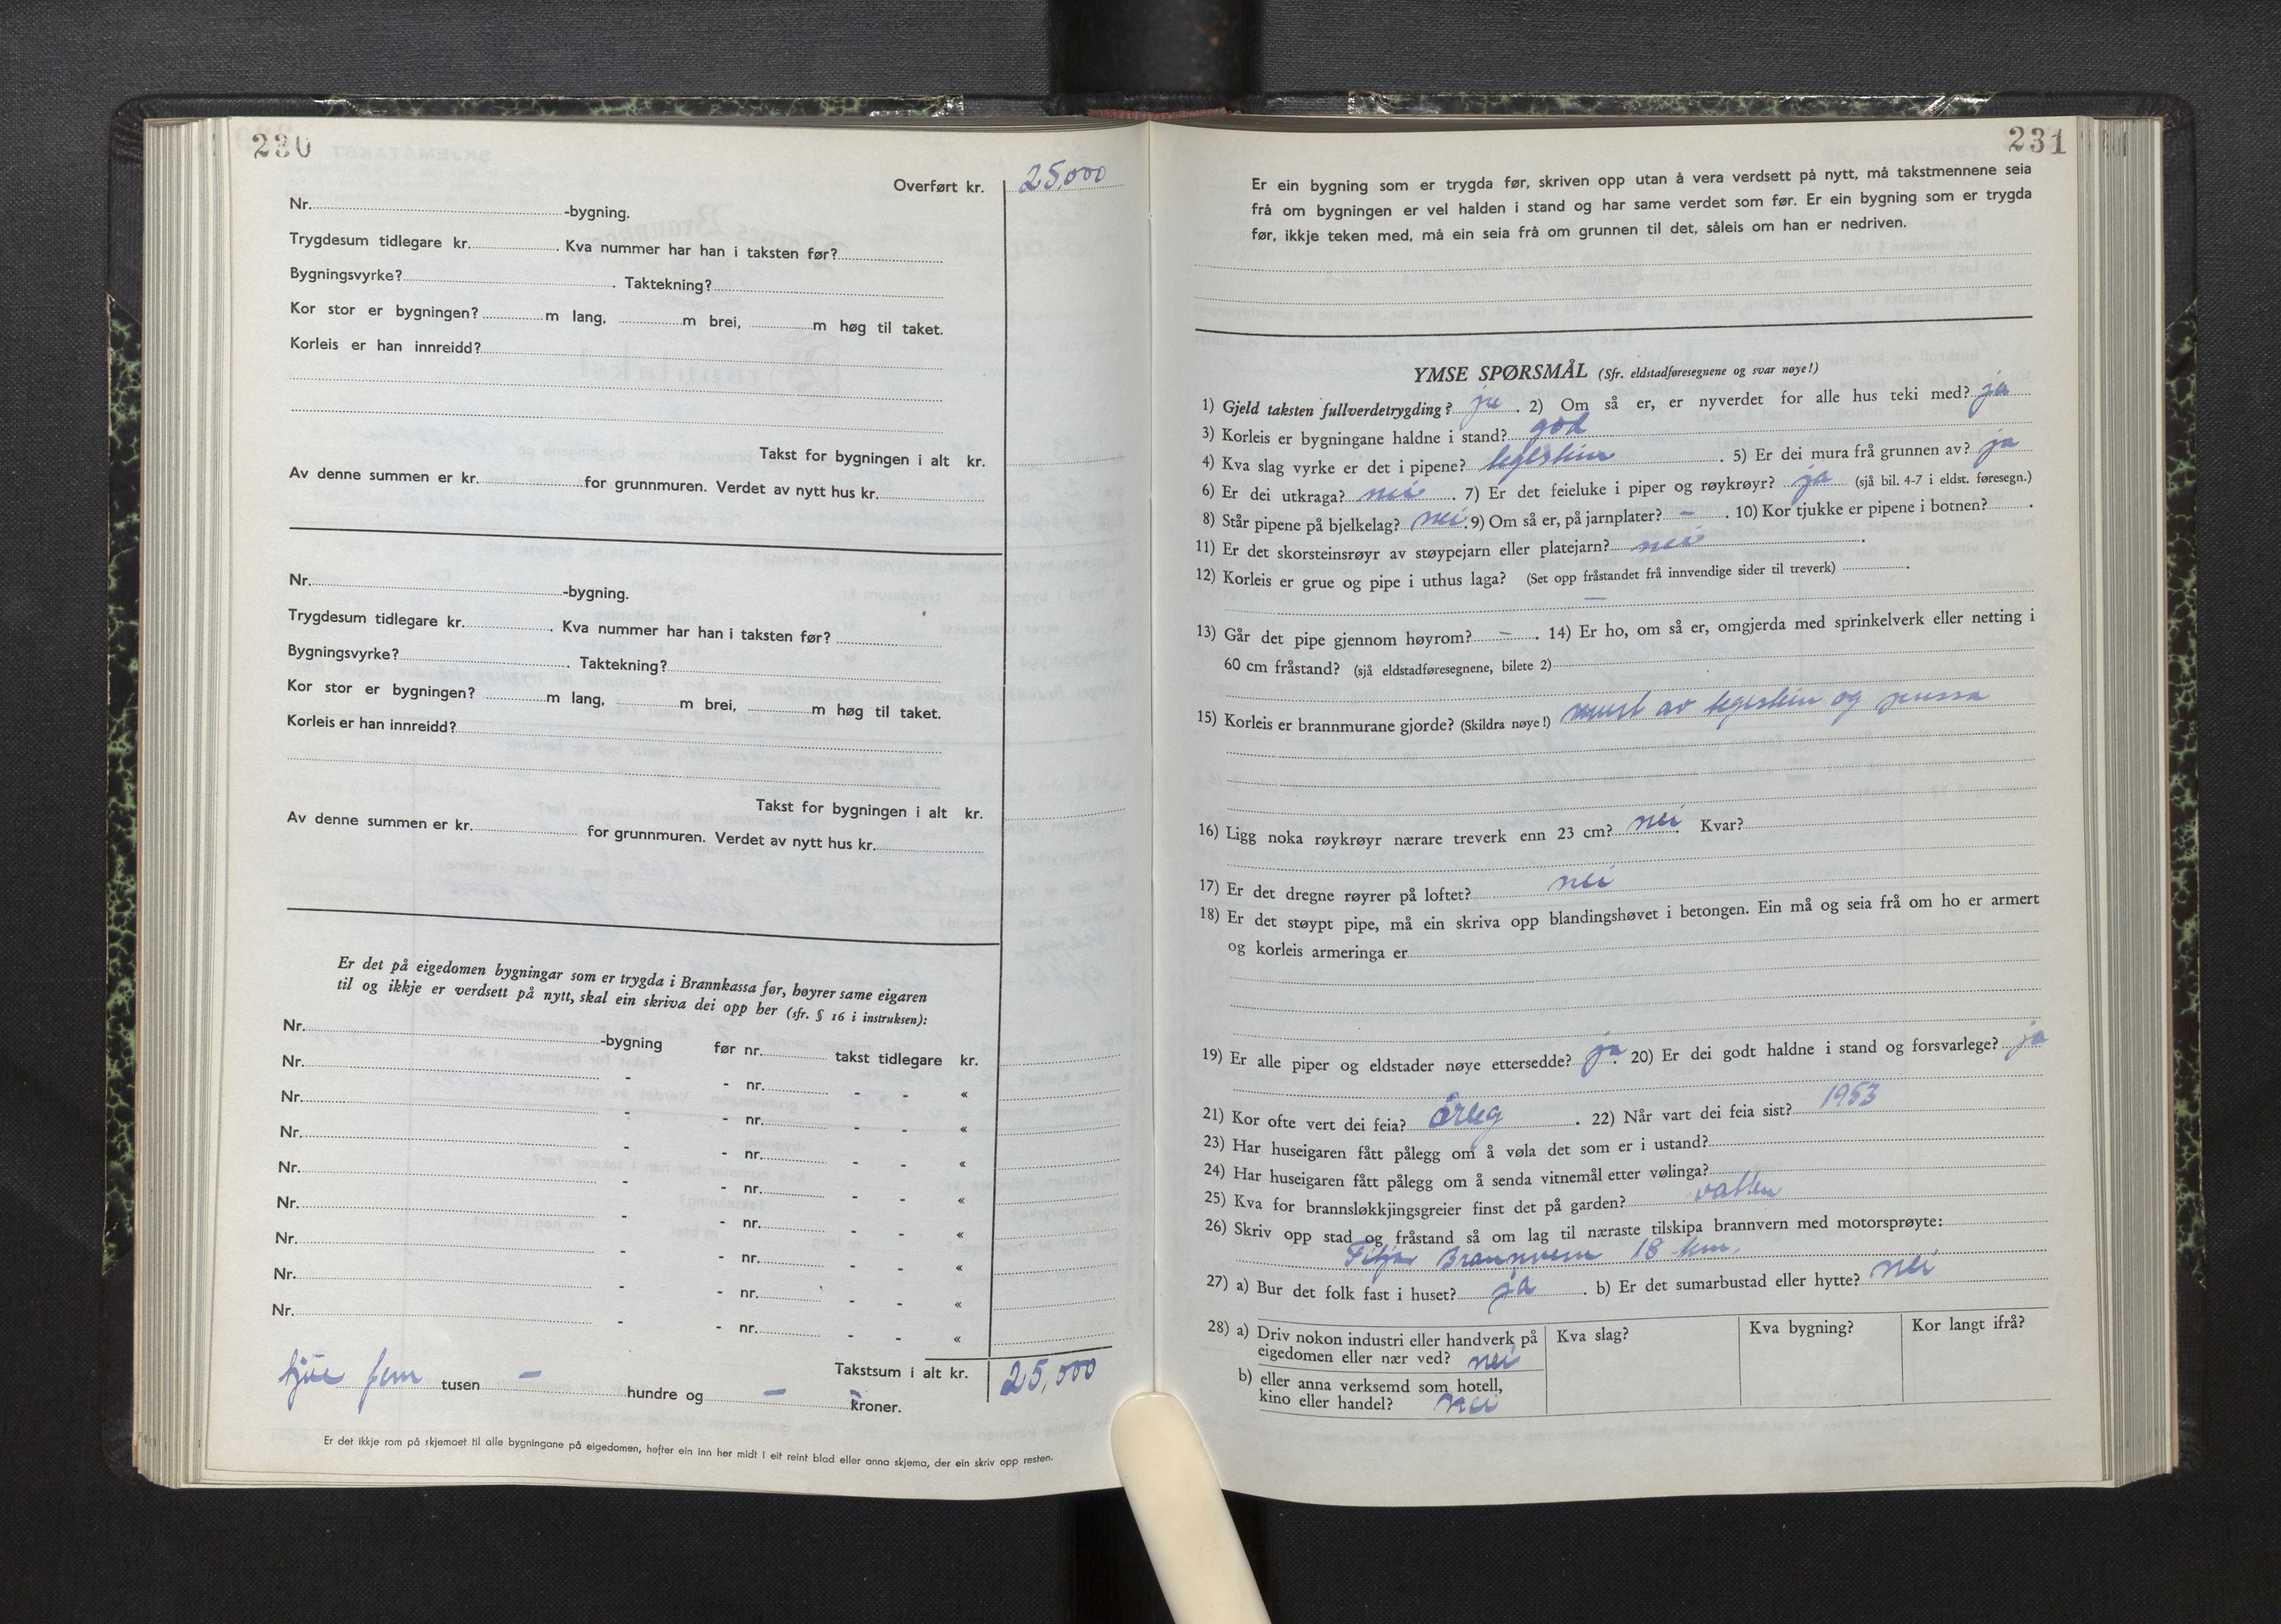 230
Overført kr. 25,000
Nr. -bygning.
Trygdesum tidlegare kr. . Kva nummer har han i taksten før?
Bygningsvyrke? . Taktekning?
Kor stor er bygningen? m lang, m brei, m høg til taket.
Korleis er han innreidd?
Takst for bygningen i alt kr.
Av denne summen er kr. for grunnmuren. Verdet av nytt hus kr.
Nr. -bygning.
Trygdesum tidlegare kr. . Kva nummer har han i taksten før?
Bygningsvyrke? . Taktekning?
Kor stor er bygningen? m lang, m brei, m høg til taket.
Korleis er han innreidd?
Takst for bygningen i alt kr.
Av denne summen er kr. for grunnmuren. Verdet av nytt hus kr.
Er det på eigedomen bygningar som er trygda i Brannkassa før, høyrer same eigaren
til og ikkje er verdsett på nytt, skal ein skriva dei opp her (sfr. § 16 i instruksen):
Nr. -bygning før nr. takst tidlegare kr.
Nr. - - nr. - - «
Nr. - - nr. - - «
Nr. - - nr. - - «
Nr. - - nr. - - «
Nr. - - nr. - - «
Nr. - - nr. - - «
Nr. - - nr. - - «
Nr. - - nr. - - «
Takstsum i alt kr. 25,000
tjue fem tusen — hundre og — kroner.
Er det ikkje rom på skjemaet til alle bygningane på eigedomen, hefter ein inn her midt i eit reint blad eller anna skjema, der ein skriv opp resten.
231
Er ein bygning som er trygda før, skriven opp utan å vera verdsett på nytt, må takstmennene seia
frå om bygningen er vel halden i stand og har same verdet som før. Er ein bygning som er trygda
før, ikkje teken med, må ein seia frå om grunnen til det, såleis om han er nedriven.
YMSE SPØRSMÅL (Sfr. eldstadføresegnene og svar nøye!)
1) Gjeld taksten fullverdetrygding? ja . 2) Om så er, er nyverdet for alle hus teki med? ja
3) Korleis er bygningane haldne i stand? god
4) Kva slag vyrke er det i pipene? teglstein . 5) Er dei mura frå grunnen av? ja
6) Er dei utkraga? nei . 7) Er det feieluke i piper og røykrøyr? ja (sjå bil. 4-7 i eldst. føresegn.)
8) Står pipene på bjelkelag? nei . 9) Om så er, på jarnplater? – . 10) Kor tjukke er pipene i botnen? .
11) Er det skorsteinsrøyr av støypejarn eller platejarn? nei .
12) Korleis er grue og pipe i uthus laga? (Set opp fråstandet frå innvendige sider til treverk) .
—
13) Går det pipe gjennom høyrom? – . 14) Er ho, om så er, omgjerda med sprinkelverk eller netting i
60 cm fråstand? (sjå eldstadføresegnene, bilete 2)
15) Korleis er brannmurane gjorde? (Skildra nøye!) murt av teglstein og pussa
16) Ligg noka røykrøyr nærare treverk enn 23 cm? nei Kvar?
17) Er det dregne røyrer på loftet? nei
18) Er det støypt pipe, må ein skriva opp blandingshøvet i betongen. Ein må og seia frå om ho er armert
og korleis armeringa er
19) Er alle piper og eldstader nøye ettersedde? ja . 20) Er dei godt haldne i stand og forsvarlege? ja
21) Kor ofte vert dei feia? årleg . 22) Når vart dei feia sist? 1953
23) Har huseigaren fått pålegg om å vøla det som er i ustand?
24) Har huseigaren fått pålegg om å senda vitnemål etter vølinga?
25) Kva for brannsløkkjingsgreier finst det på garden? vatten
26) Skriv opp stad og fråstand så om lag til næraste tilskipa brannvern med motorsprøyte:
Fitjar Brannvern 18 km.
27) a) Bur det folk fast i huset? ja . b) Er det sumarbustad eller hytte? nei
28) a) Driv nokon industri eller handverk på
eigedomen eller nær ved? nei
Kva slag?
Kva bygning?
Kor langt ifrå?
b) eller anna verksemd som hotell,
kino eller handel? nei